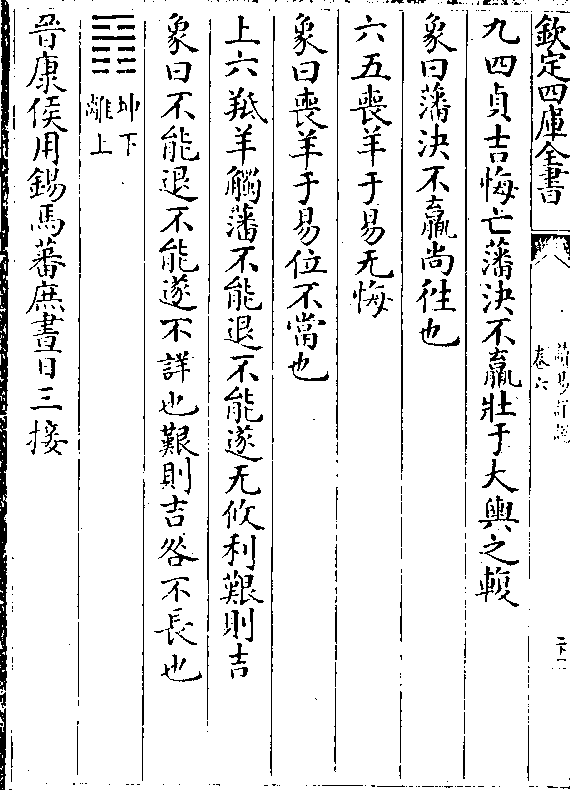 欽定四庫全書
卷六
九四貞吉悔亡藩決不羸壯于大輿之輹
象曰藩決不羸尚徃也
六五喪羊于易无悔
象曰喪羊于易位不當也
上六羝羊觸藩不能退不能遂无攸利艱則吉
象曰不能退不能遂不詳也艱則吉咎不長也
坤下
離上
晉康侯用錫馬蕃庶晝日三接